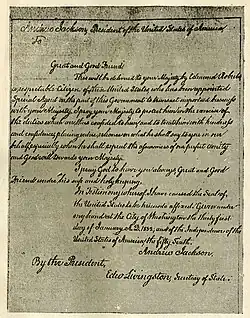 Andrew Jackson, President of the United States of America
To
Great and Good Friend
This will be delivered to your Majesty by Edmund Roberts
a respectable Citizen of these United States who has been appointed
Special Agent on the part of this Government to transact important business
with your Majesty. I pray your Majesty to protect him in the exercise of
the duties which are thus confided to him and to treat him with kindness
and confidence placing entire reliance on what he shall say to you in our
behalf especially when he shall repeat the assurances of our perfect amity
and Good will towards your Majesty.
I pray God to have you always Great and Good
Friend under his safe and holy keeping.
In Testimony whereof I have caused the Seal of
the United States to be hereunto affixed. Given under
my hand at the City of Washington the thirty first
day of January A.D. 1832, and of the Independence of the
United States of America the fifty Sixth.
Andrew Jackson.
By the President,
Edw. Livingston, Secretary of State.